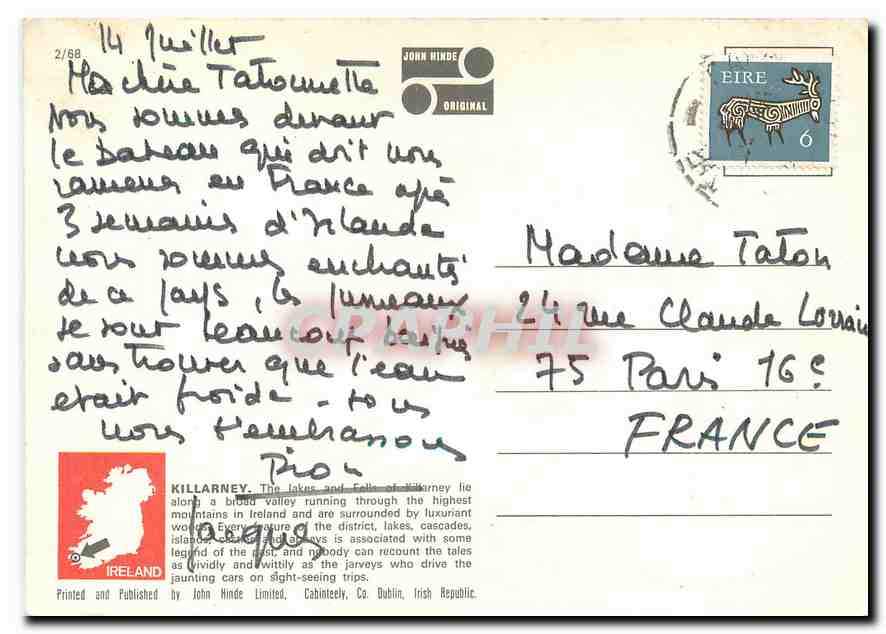 2/68
14 Juillet
Ma chère Tatounette
Nous sommes devant
le bateau qui doit nous
ramener en France après
3 semaines d'Irlande
nous sommes enchantés
de ce pays, les jumeaux
se sont beaucoup baignés
sans trouver que l'eau
etait froide - tous
nous t'embrassons
Jacques
JOHN HINDE
ORIGINAL
EIRE
6
Madame Taton
24 rue Claude Lorrain
75 Paris 16e
FRANCE
CPAPHIL
IRELAND
KILLARNEY. The lakes and Fells of Killarney lie
along a broad valley running through the highest
mountains in Ireland and are surrounded by luxuriant
woods. Every feature of the district, lakes, cascades,
islands, castles and abbeys is associated with some
legend of the past, and nobody can recount the tales
as vividly and wittily as the jarveys who drive the
jaunting cars on sight-seeing trips.
Printed and Published by John Hinde Limited, Cabinteely, Co. Dublin, Irish Republic.